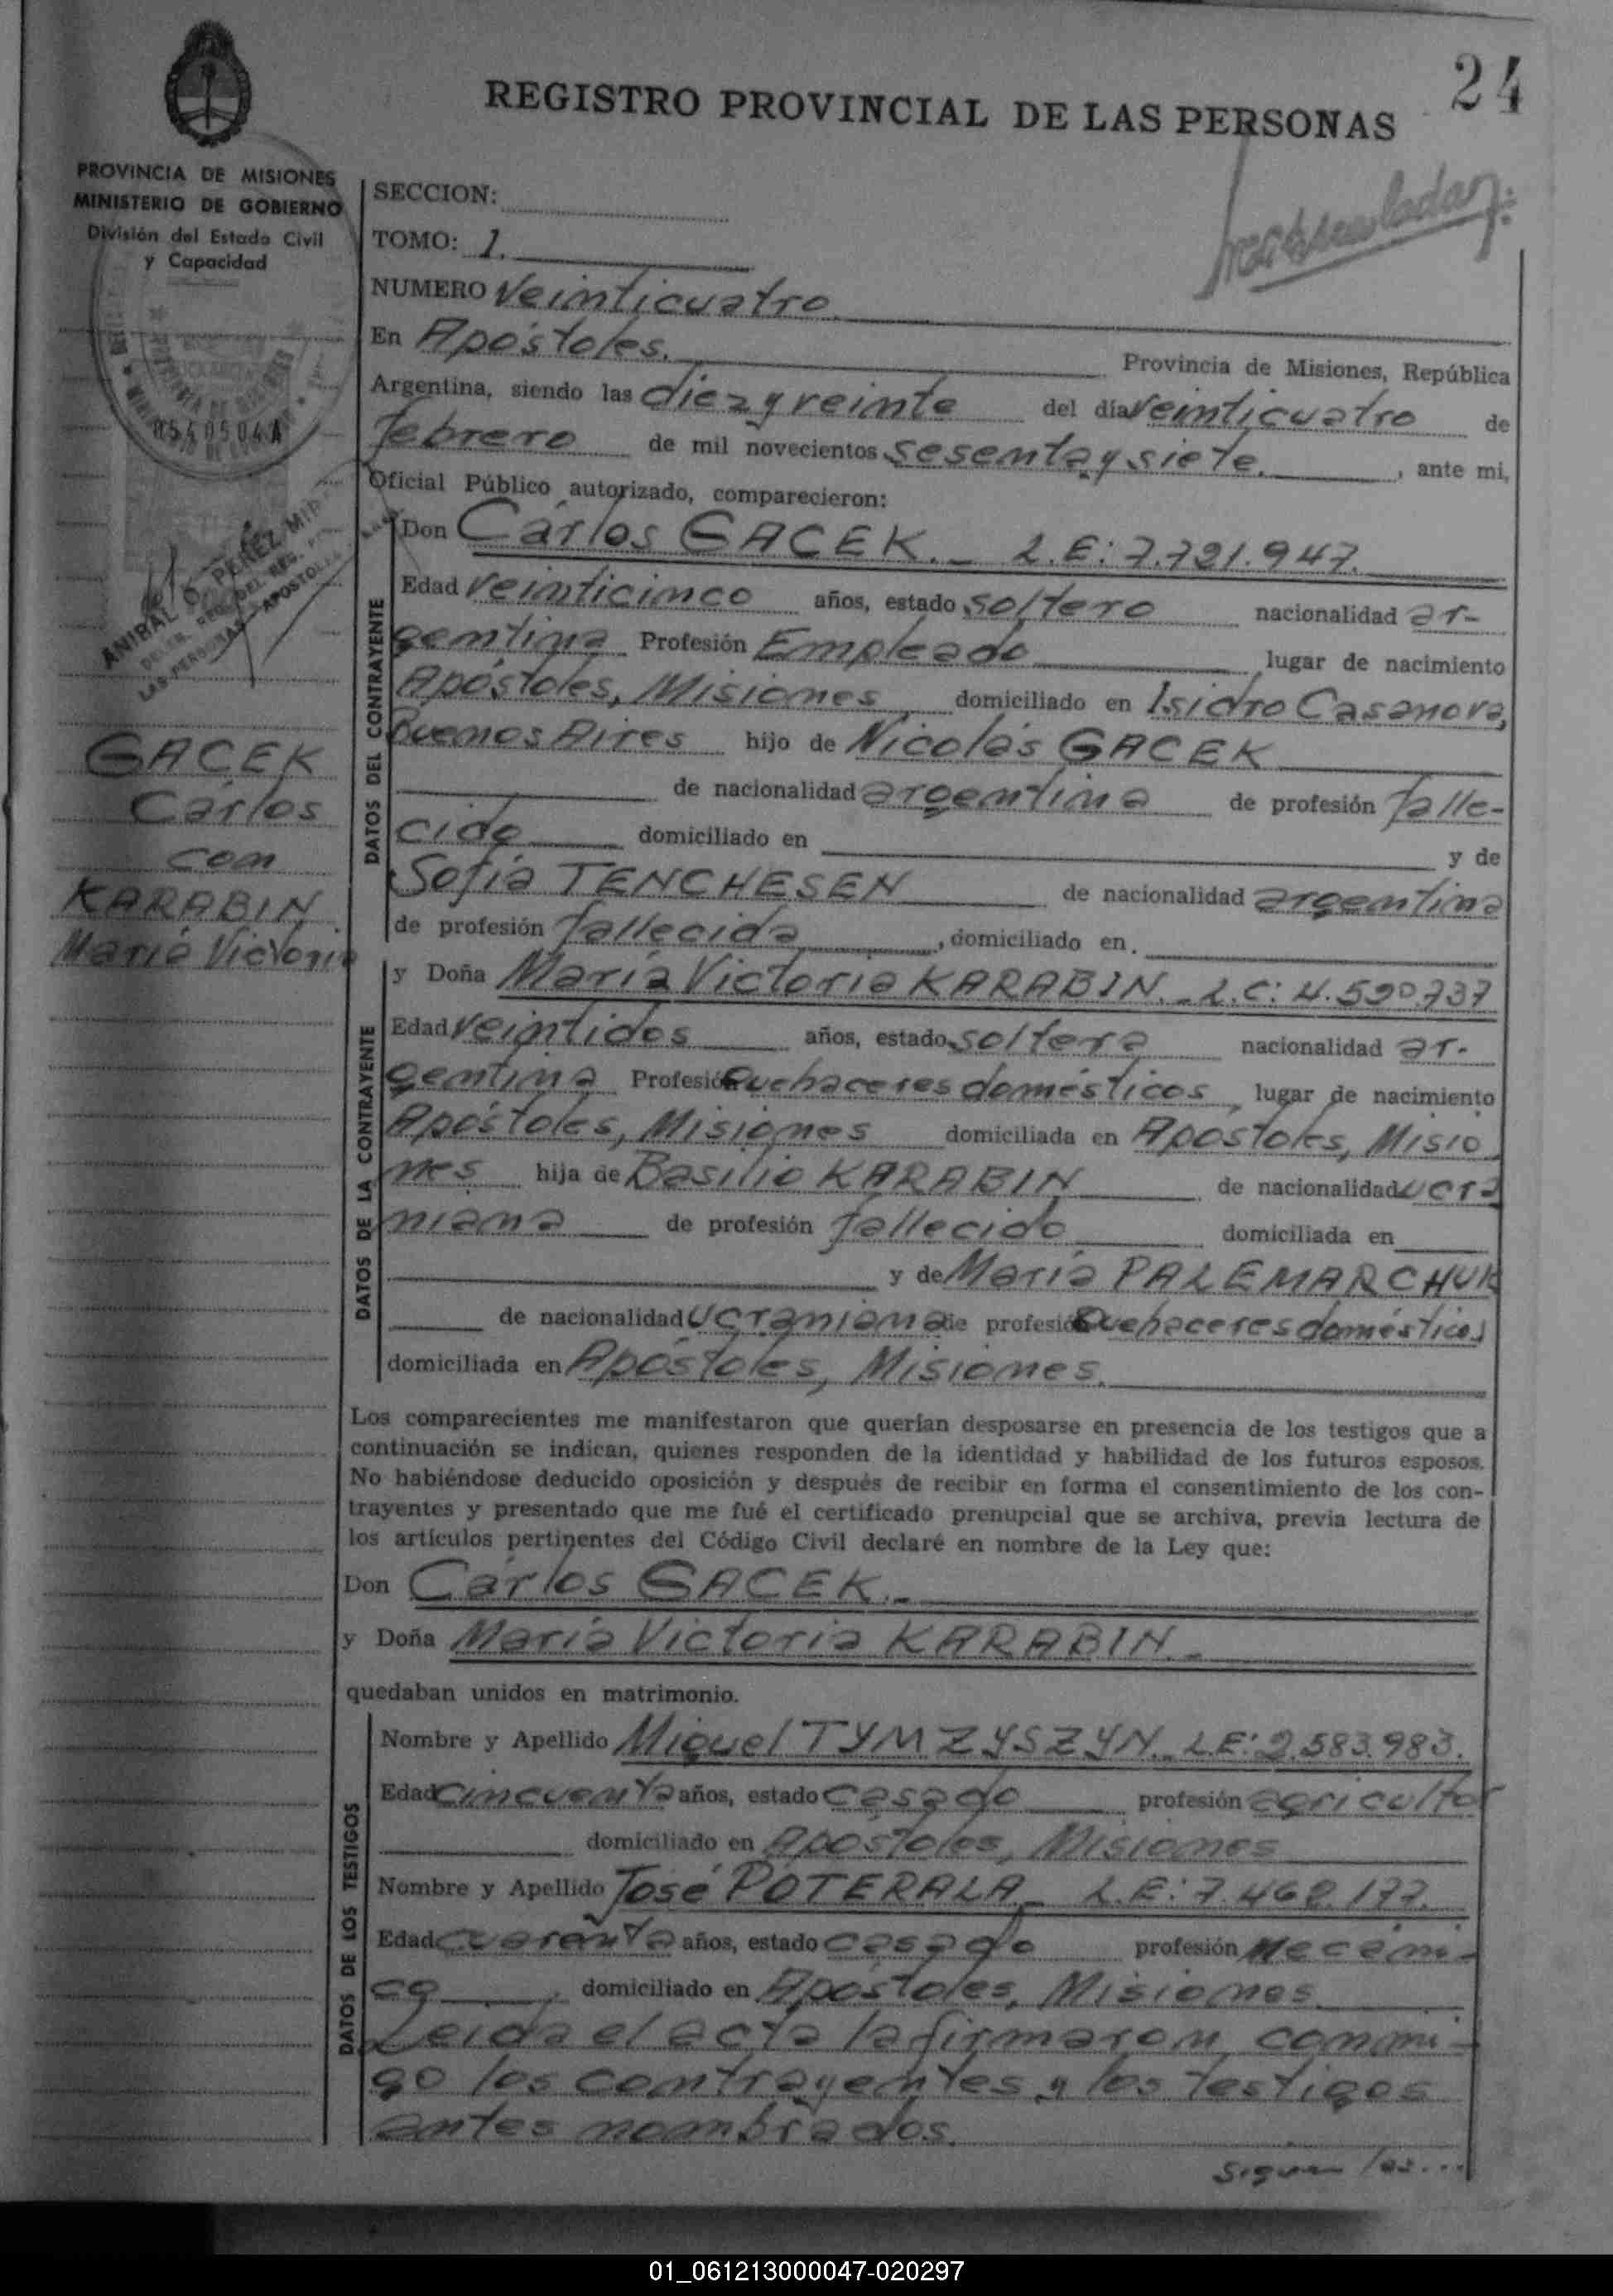 24
REGISTRO PROVINCIAL DE LAS PERSONAS
PROVINCIA DE MISIONES
MINISTERIO DE GOBIERNO
División del Estado Civil
y Capacidad
SECCION:
TOMO: 1.
NUMERO Veinticuatro.
En Apóstoles. Provincia de Misiones, República
Argentina, siendo las diez y veinte del día veinticuatro de
febrero de mil novecientos sesenta y siete. , ante mi,
Oficial Público autorizado, comparecieron:
ANIBAL O. PEREZ
DEL REG.
LAS PERSONAS - APOSTOLES
GACEK
Carlos
con
KARABIN
María Victoria
DATOS DEL CONTRAYENTE
Don Carlos GACEK.- L.E: 7.721.947.
Edad veinticinco años, estado soltero nacionalidad ar-
gentina Profesión Empleado lugar de nacimiento
Apóstoles, Misiones domiciliado en Isidro Casanova,
Buenos Aires hijo de Nicolás GACEK
de nacionalidad argentina de profesión falle-
cido domiciliado en y de
Sofía TENCHESEN de nacionalidad argentina
de profesión fallecida , domiciliado en.
DATOS DE LA CONTRAYENTE
y Doña María Victoria KARABIN.- L.C: 4.590.737
Edad veintidos años, estado soltera nacionalidad ar-
gentina Profesión Quehaceres domésticos lugar de nacimiento
Apóstoles, Misiones domiciliada en Apostoles, Misio
nes hija de Basilio KARABIN de nacionalidad ucra
niana de profesión fallecido domiciliada en
y de María PALEMARCHUK
de nacionalidad ucraniana de profesión Quehaceres domésticos
domiciliada en Apóstoles, Misiones.
Los comparecientes me manifestaron que querían desposarse en presencia de los testigos que a
continuación se indican, quienes responden de la identidad y habilidad de los futuros esposos.
No habiéndose deducido oposición y después de recibir en forma el consentimiento de los con-
trayentes y presentado que me fué el certificado prenupcial que se archiva, previa lectura de
los artículos pertinentes del Código Civil declaré en nombre de la Ley que:
Don Carlos GACEK.-
y Doña María Victoria KARABIN.-
quedaban unidos en matrimonio.
DATOS DE LOS TESTIGOS
Nombre y Apellido Miguel TYMZYSZYN.- L.E: 2.583.983.
Edad cincuenta años, estado casado profesión agricultor
domiciliado en Apóstoles, Misiones
Nombre y Apellido José POTERALA.- L.E: 7.468.177.
Edad cuarenta años, estado casado profesión Mecáni-
co , domiciliado en Apóstoles, Misiones
Leida el acta la firmaron conmi-
go los contrayentes y los testigos
antes nombrados.
Siguen las...
01_061213000047-020297